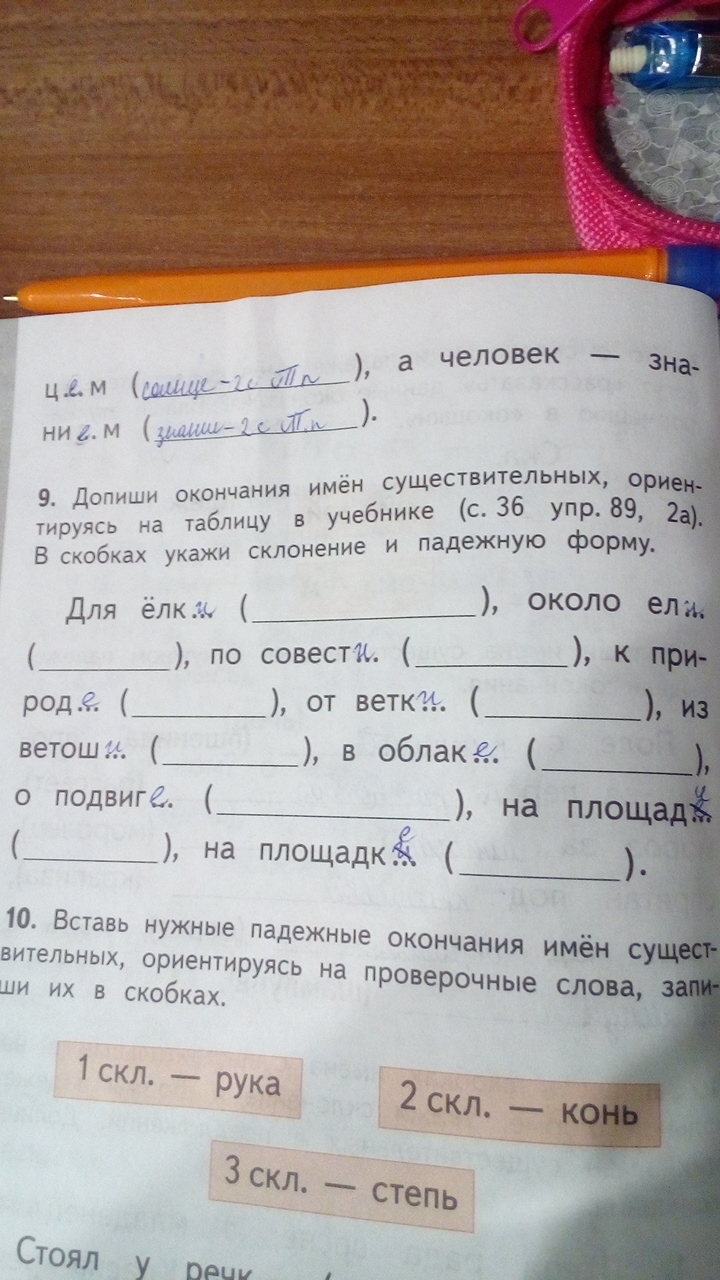 ц.е.м (солнце-2с Т п), а человек — зна-
ни е.м (знание-2с Т.п).
9. Допиши окончания имён существительных, ориен-
тируясь на таблицу в учебнике (с. 36 упр. 89, 2а).
В скобках укажи склонение и падежную форму.
Для ёлк и (____), около ел и
(____), по совест и. (____), к при-
род е (____), от ветк и (____), из
ветош и (____), в облак е (____),
о подвиг е. (____), на площад и
(____), на площадк е (____).
10. Вставь нужные падежные окончания имён сущест-
вительных, ориентируясь на проверочные слова, запи-
ши их в скобках.
1 скл. — рука
2 скл. — конь
3 скл. — степь
Стоял у речк (